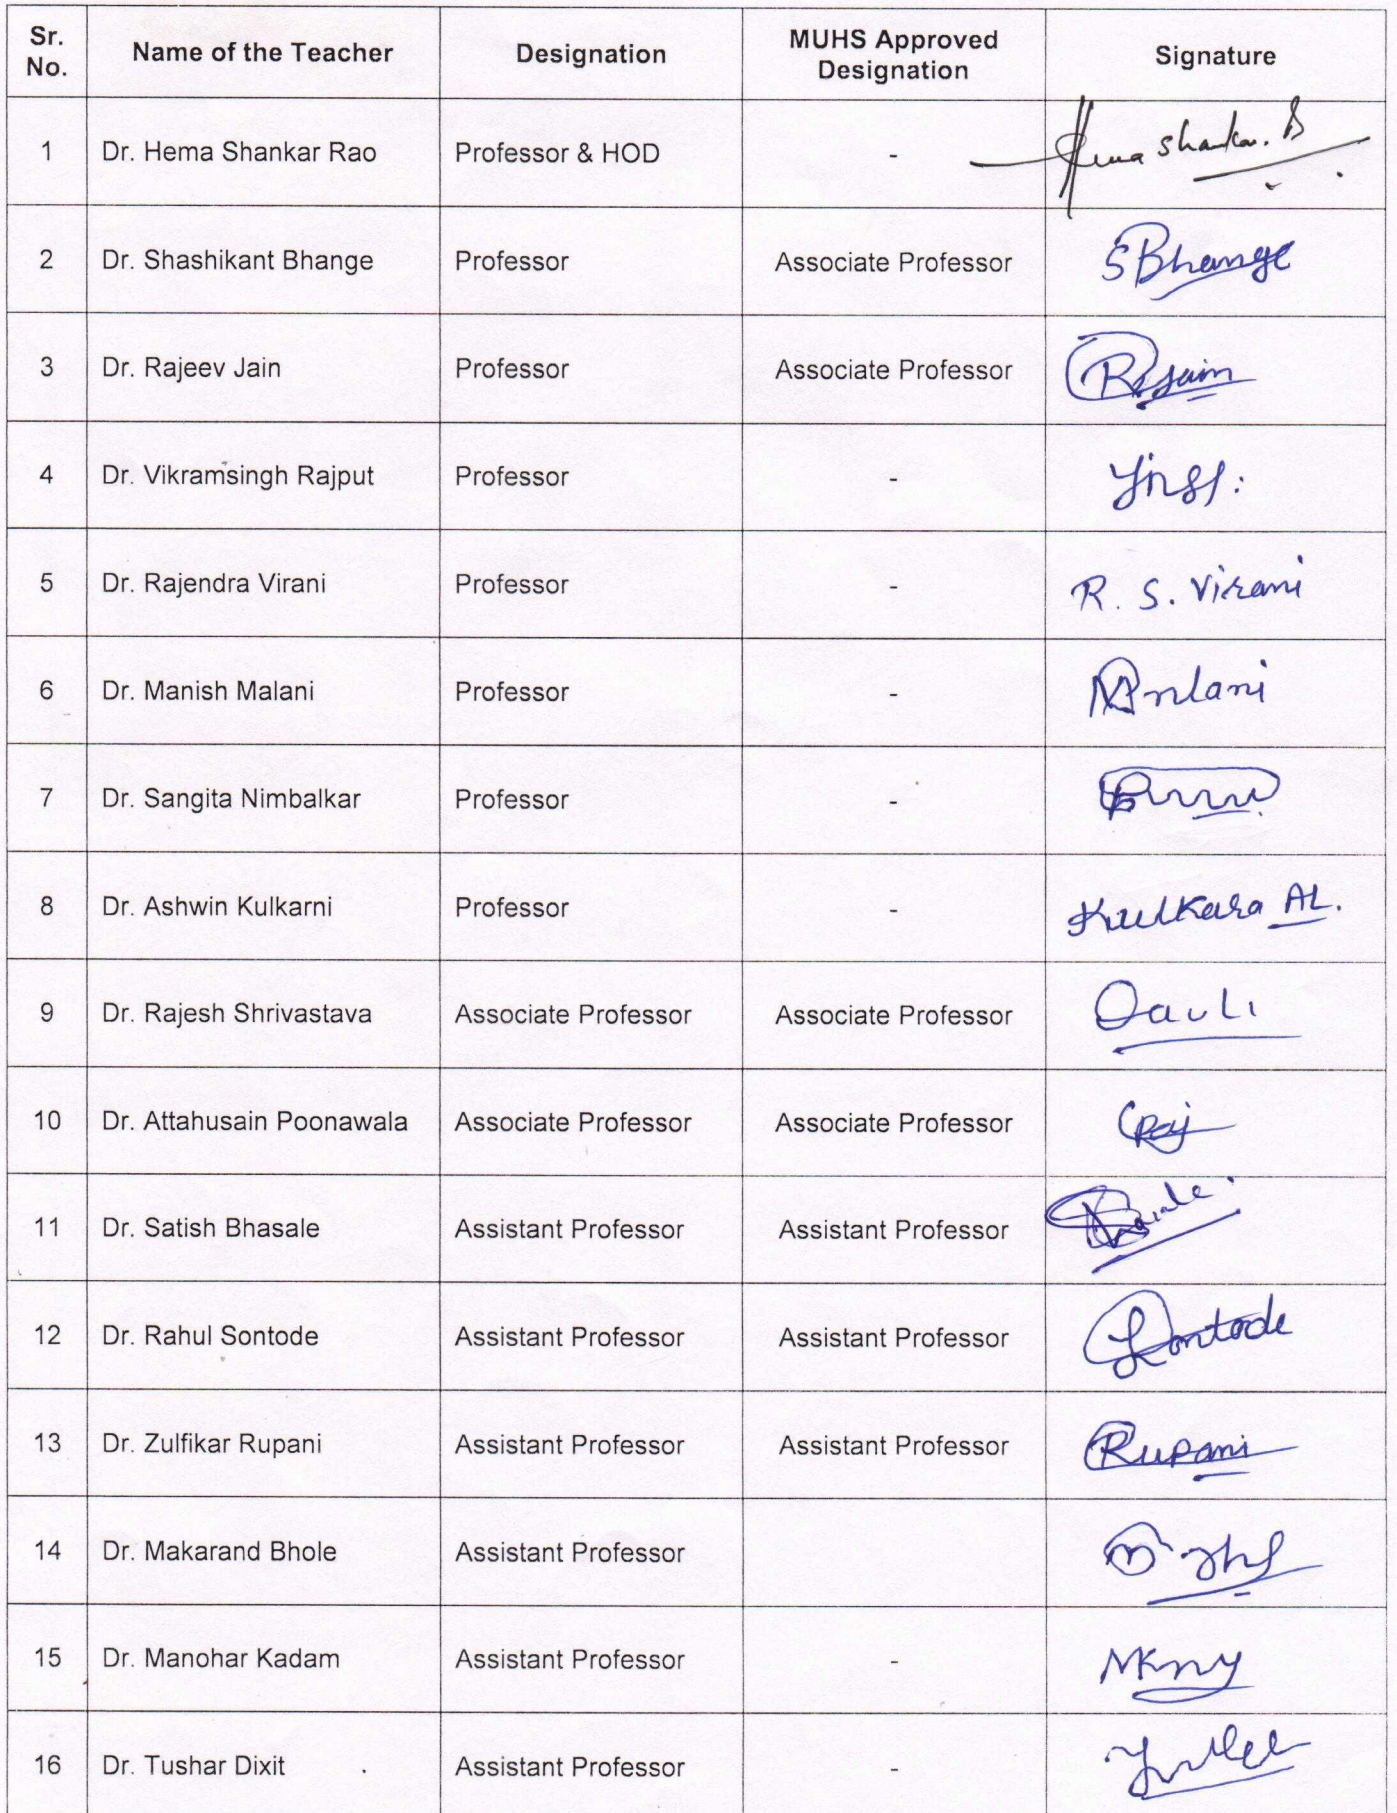 Sr. No. Name of the Teacher Designation MUHS Approved Designation Signature
1 Dr. Hema Shankar Rao Professor & HOD - Hema Shankar. B
2 Dr. Shashikant Bhange Professor Associate Professor SBhange
3 Dr. Rajeev Jain Professor Associate Professor RJain
4 Dr. Vikramsingh Rajput Professor -
5 Dr. Rajendra Virani Professor - R. S. Virani
6 Dr. Manish Malani Professor -
7 Dr. Sangita Nimbalkar Professor -
8 Dr. Ashwin Kulkarni Professor -
9 Dr. Rajesh Shrivastava Associate Professor Associate Professor
10 Dr. Attahusain Poonawala Associate Professor Associate Professor
11 Dr. Satish Bhasale Assistant Professor Assistant Professor
12 Dr. Rahul Sontode Assistant Professor Assistant Professor Sontode
13 Dr. Zulfikar Rupani Assistant Professor Assistant Professor Rupani
14 Dr. Makarand Bhole Assistant Professor
15 Dr. Manohar Kadam Assistant Professor -
16 Dr. Tushar Dixit Assistant Professor -